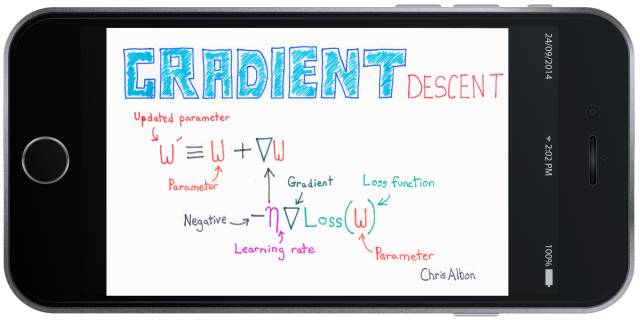 GRADIENT DESCENT
Updated parameter
w′ ≡ w + ∇w
Parameter
Gradient
Loss function
Negative
−η∇Loss(w)
Learning rate
Parameter
Chris Albon
24/09/2014
2:02 PM
100%